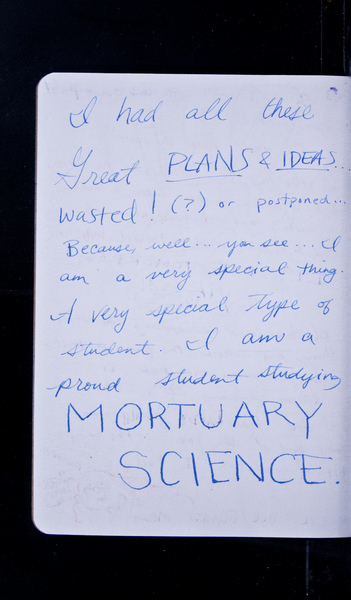 I had all these
Great PLANS & IDEAS...
wasted! (?) or postponed...
Because, well... you see... I
am a very special thing.
A very special type of
student. I am a
proud student studying
MORTUARY
SCIENCE.